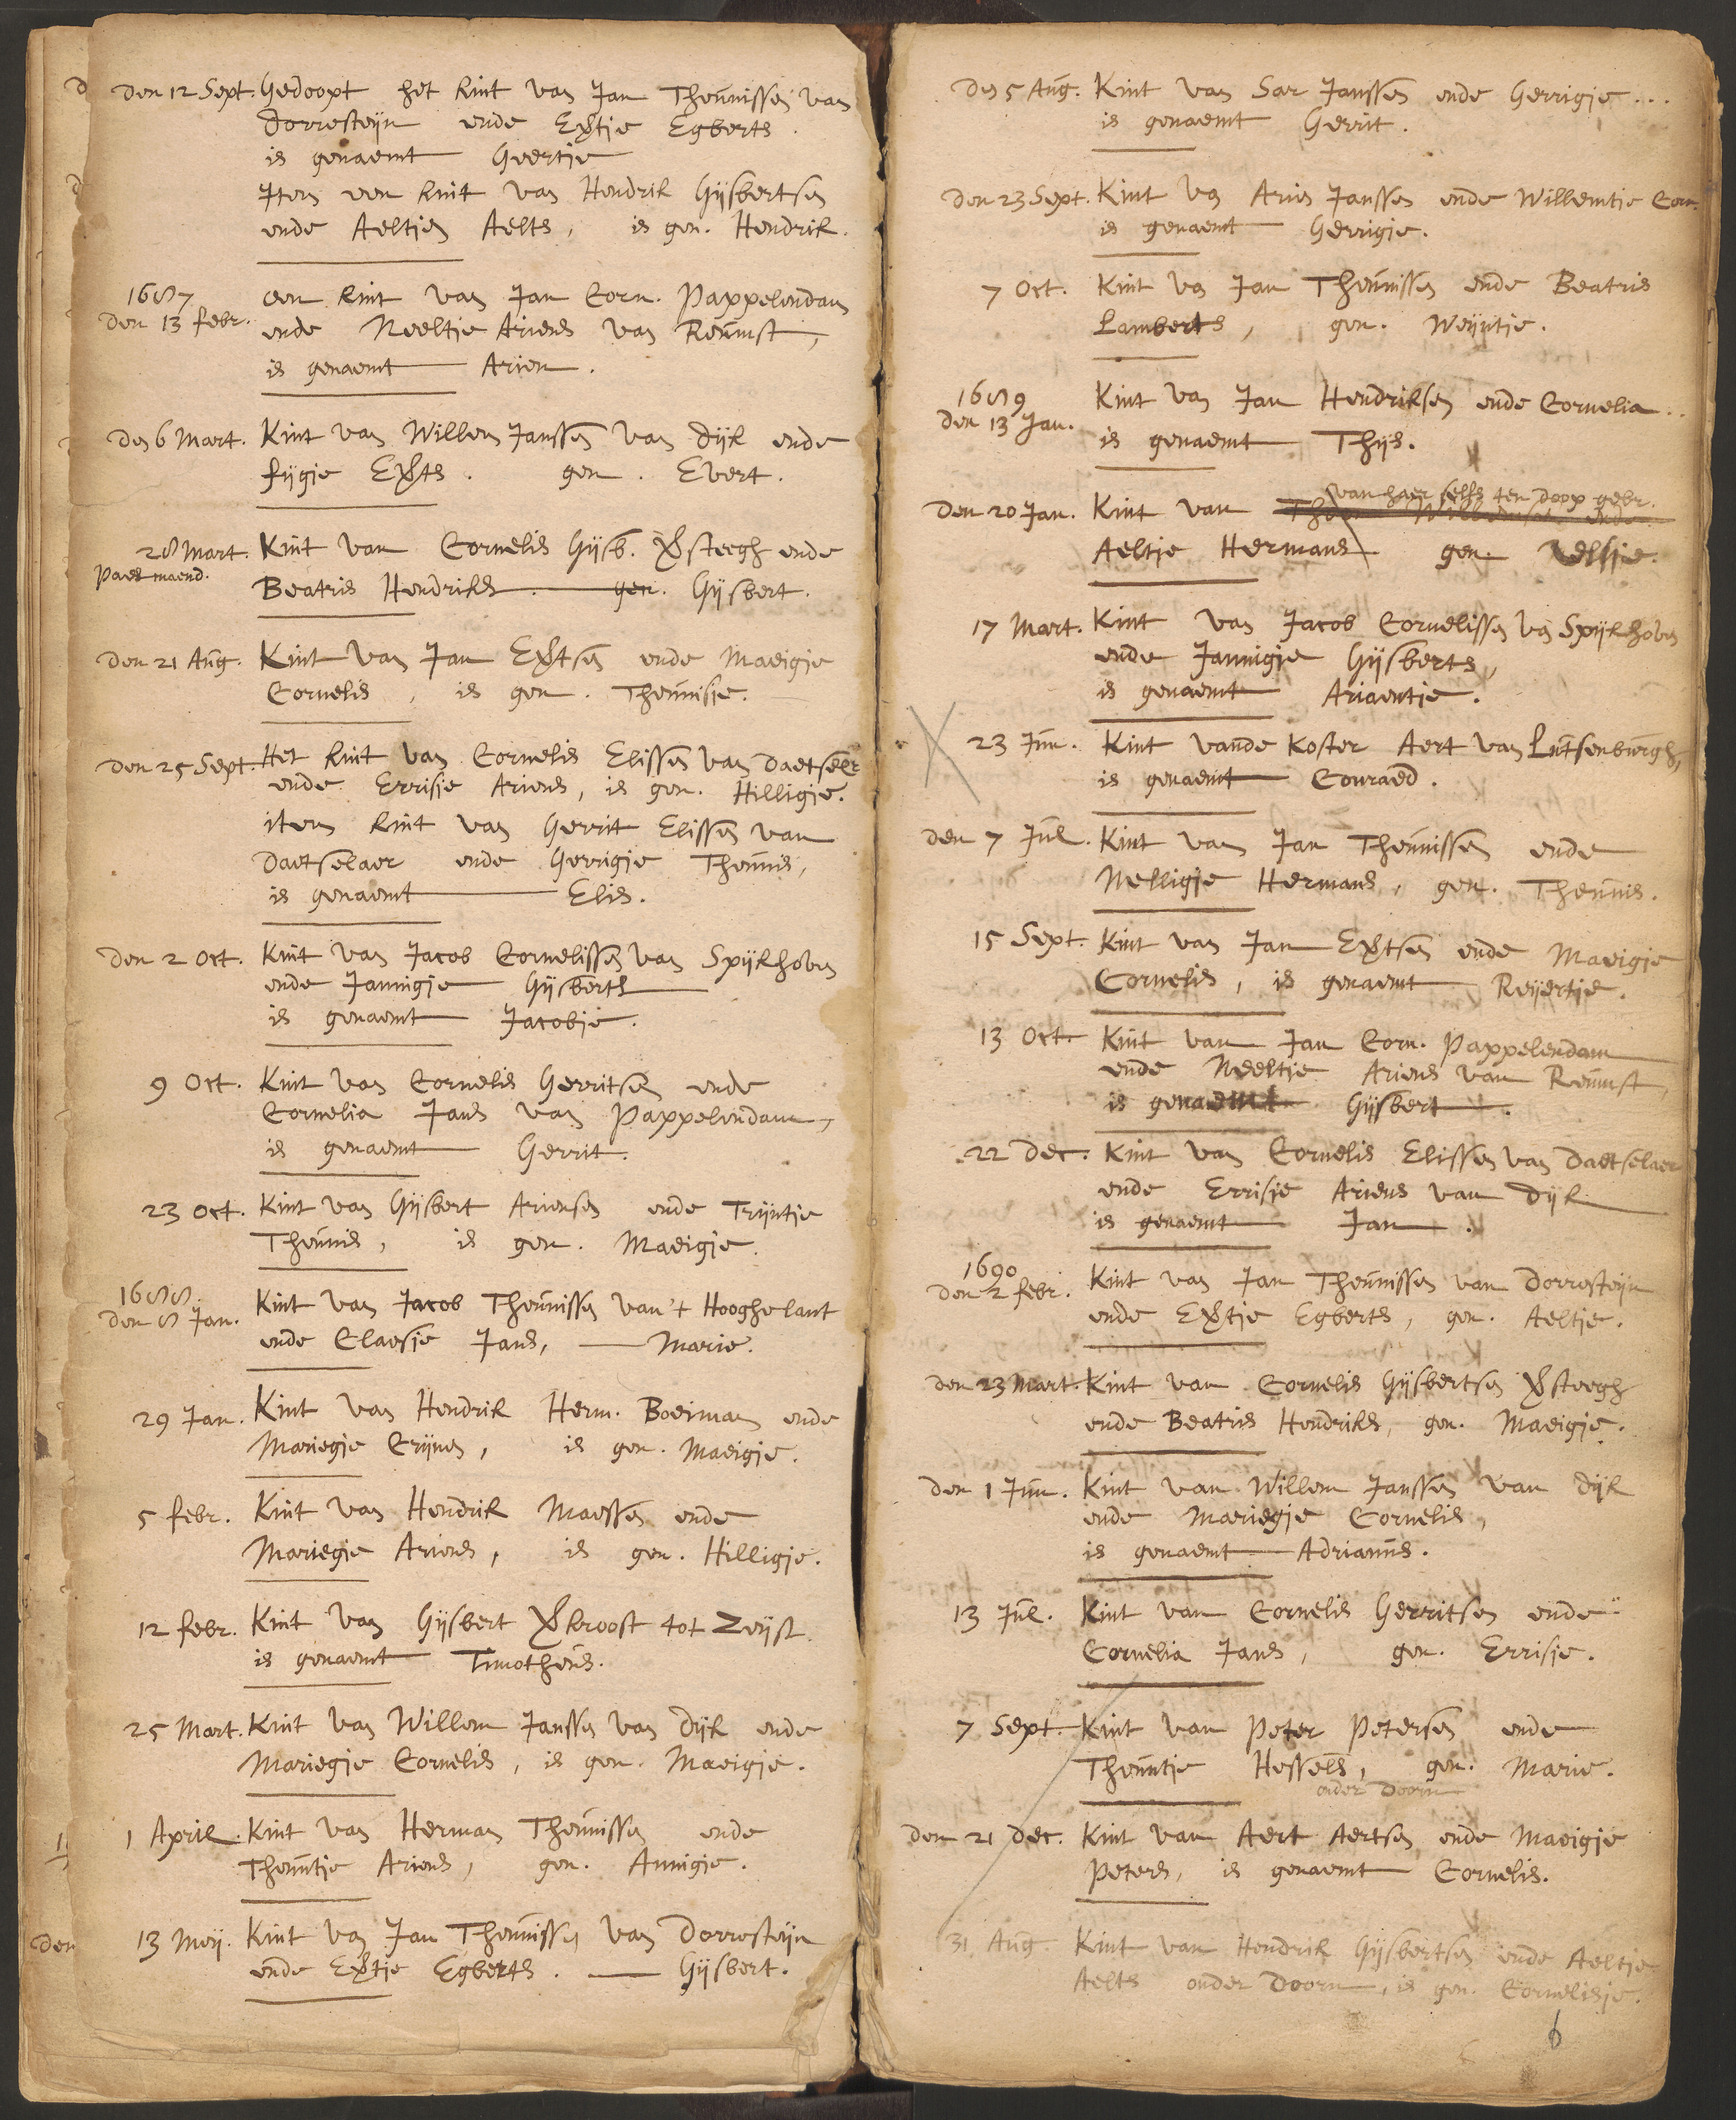 den 12 Sept. Gedoopt het kint van Jan Theunissen van
Dorresteijn ende Evertje Egberts.
is genaemt Geertje
Item een kint van Hendrik Gijsbertsen
ende Aeltjen Aelts, is gen. Hendrik.
1687
den 13 febr. een kint van Jan Corn. Pappelendam
ende Neeltje Ariens van Reumst,
is genaemt Arien.
den 6 Mart. Kint van Willem Janssen van Dijk ende
fijgje Everts. gen. Evert.
28 Mart. Kint van Cornelis Gijsb. Versteegh ende
Paes maend.
Beatris Hendriks. gen. Gijsbert.
den 21 Aug. Kint van Jan Evertsen ende Maeigje
Cornelis, is gen. Theunisje.
den 25 Sept. Het kint van Cornelis Elissen van Daetselaer
ende Errisje Ariens, is gen. Hilligje.
item kint van Gerrit Elissen van
Daetselaer ende Gerrigje Theunis,
is genaemt Elis.
den 2 Oct. Kint van Jacob Cornelissen van Spijkhoven
ende Jannigje Gijsberts
is genaemt Jacobje.
9 Oct. Kint van Cornelis Gerritsen ende
Cornelia Jans van Pappelendam,
is genaemt Gerrit.
23 Oct. Kint van Gijsbert Ariensen ende Trijntje
Theunis, is gen. Maeigje.
1688.
den 8 Jan. Kint van Jacob Theunissen van't Hooghelant
ende Claesje Jans, Marie.
29 Jan. Kint van Hendrik Herm. Boeiman ende
Mariegje Crijnen, is gen. Maeigje.
5 febr. Kint van Hendrik Maessen ende
Mariegje Ariens, is gen. Hilligje.
12 febr. Kint van Gijsbert Verkroost tot Zeijst.
is genaemt Timotheus.
25 Mart. Kint van Willem Janssen van Dijk ende
Mariegje Cornelis, is gen. Maeigje.
1 April. Kint van Herman Theunissen ende
Theuntje Ariens, gen. Annigje.
13 Meij. Kint van Jan Theunissen van Dorresteijn
ende Evertje Egberts. Gijsbert.
den 5 Aug. Kint van Sar Janssen ende Gerrigje...
is genaemt Gerrit.
den 23 Sept. Kint van Arien Janssen ende Willemtje Corn.
is genaemt Gerrigje.
7 Oct. Kint van Jan Theunissen ende Beatris
Lamberts, gen. Weijntje.
1689
den 13 Jan. Kint van Jan Hendriksen ende Cornelia..
is genaemt Thijs.
van haer selfs ten doop gebr.
den 20 Jan. Kint van
Aeltje Hermans gen.
17 Mart. Kint van Jacob Cornelissen van Spijkhoven
ende Jannigje Gijsberts,
is genaemt Ariaentje.
23 Jun. Kint vande Koster Aert van Lutsenburgh,
is genaemt Conraed.
den 7 Jul. Kint van Jan Theunissen ende
Nelligje Hermans, gen. Theunis.
15 Sept. Kint van Jan Evertsen ende Maeigje
Cornelis, is genaemt Reijertje.
13 Oct. Kint van Jan Corn. Pappelendam
ende Neeltje Ariens van Reumst,
is genaemt Gijsbert.
22 Dec. Kint van Cornelis Elissen van Daetselaer
ende Errisje Ariens van Dijk
is genaemt Jan.
1690
den 2 febr. Kint van Jan Theunissen van Dorresteijn
ende Evertje Egberts, gen. Aeltje.
den 23 Mart. Kint van Cornelis Gijsbertsen Versteegh
ende Beatris Hendriks, gen. Maeigje.
den 1 Jun. Kint van Willem Janssen van Dijk
ende Mariegje Cornelis,
is genaemt Adrianus.
13 Jul. Kint van Cornelis Gerritsen ende
Cornelia Jans, gen. Errisje.
7 Sept. Kint van Peter Petersen ende
Theuntje Hessels, gen. Marie.
onder Doorn
den 21 Dec. Kint van Aert Aertsen ende Maeigje
Peters, is genaemt Cornelis.
31 Aug. Kint van Hendrik Gijsbertsen ende Aeltje
Aelts onder Doorn, is gen. Cornelisje.
6